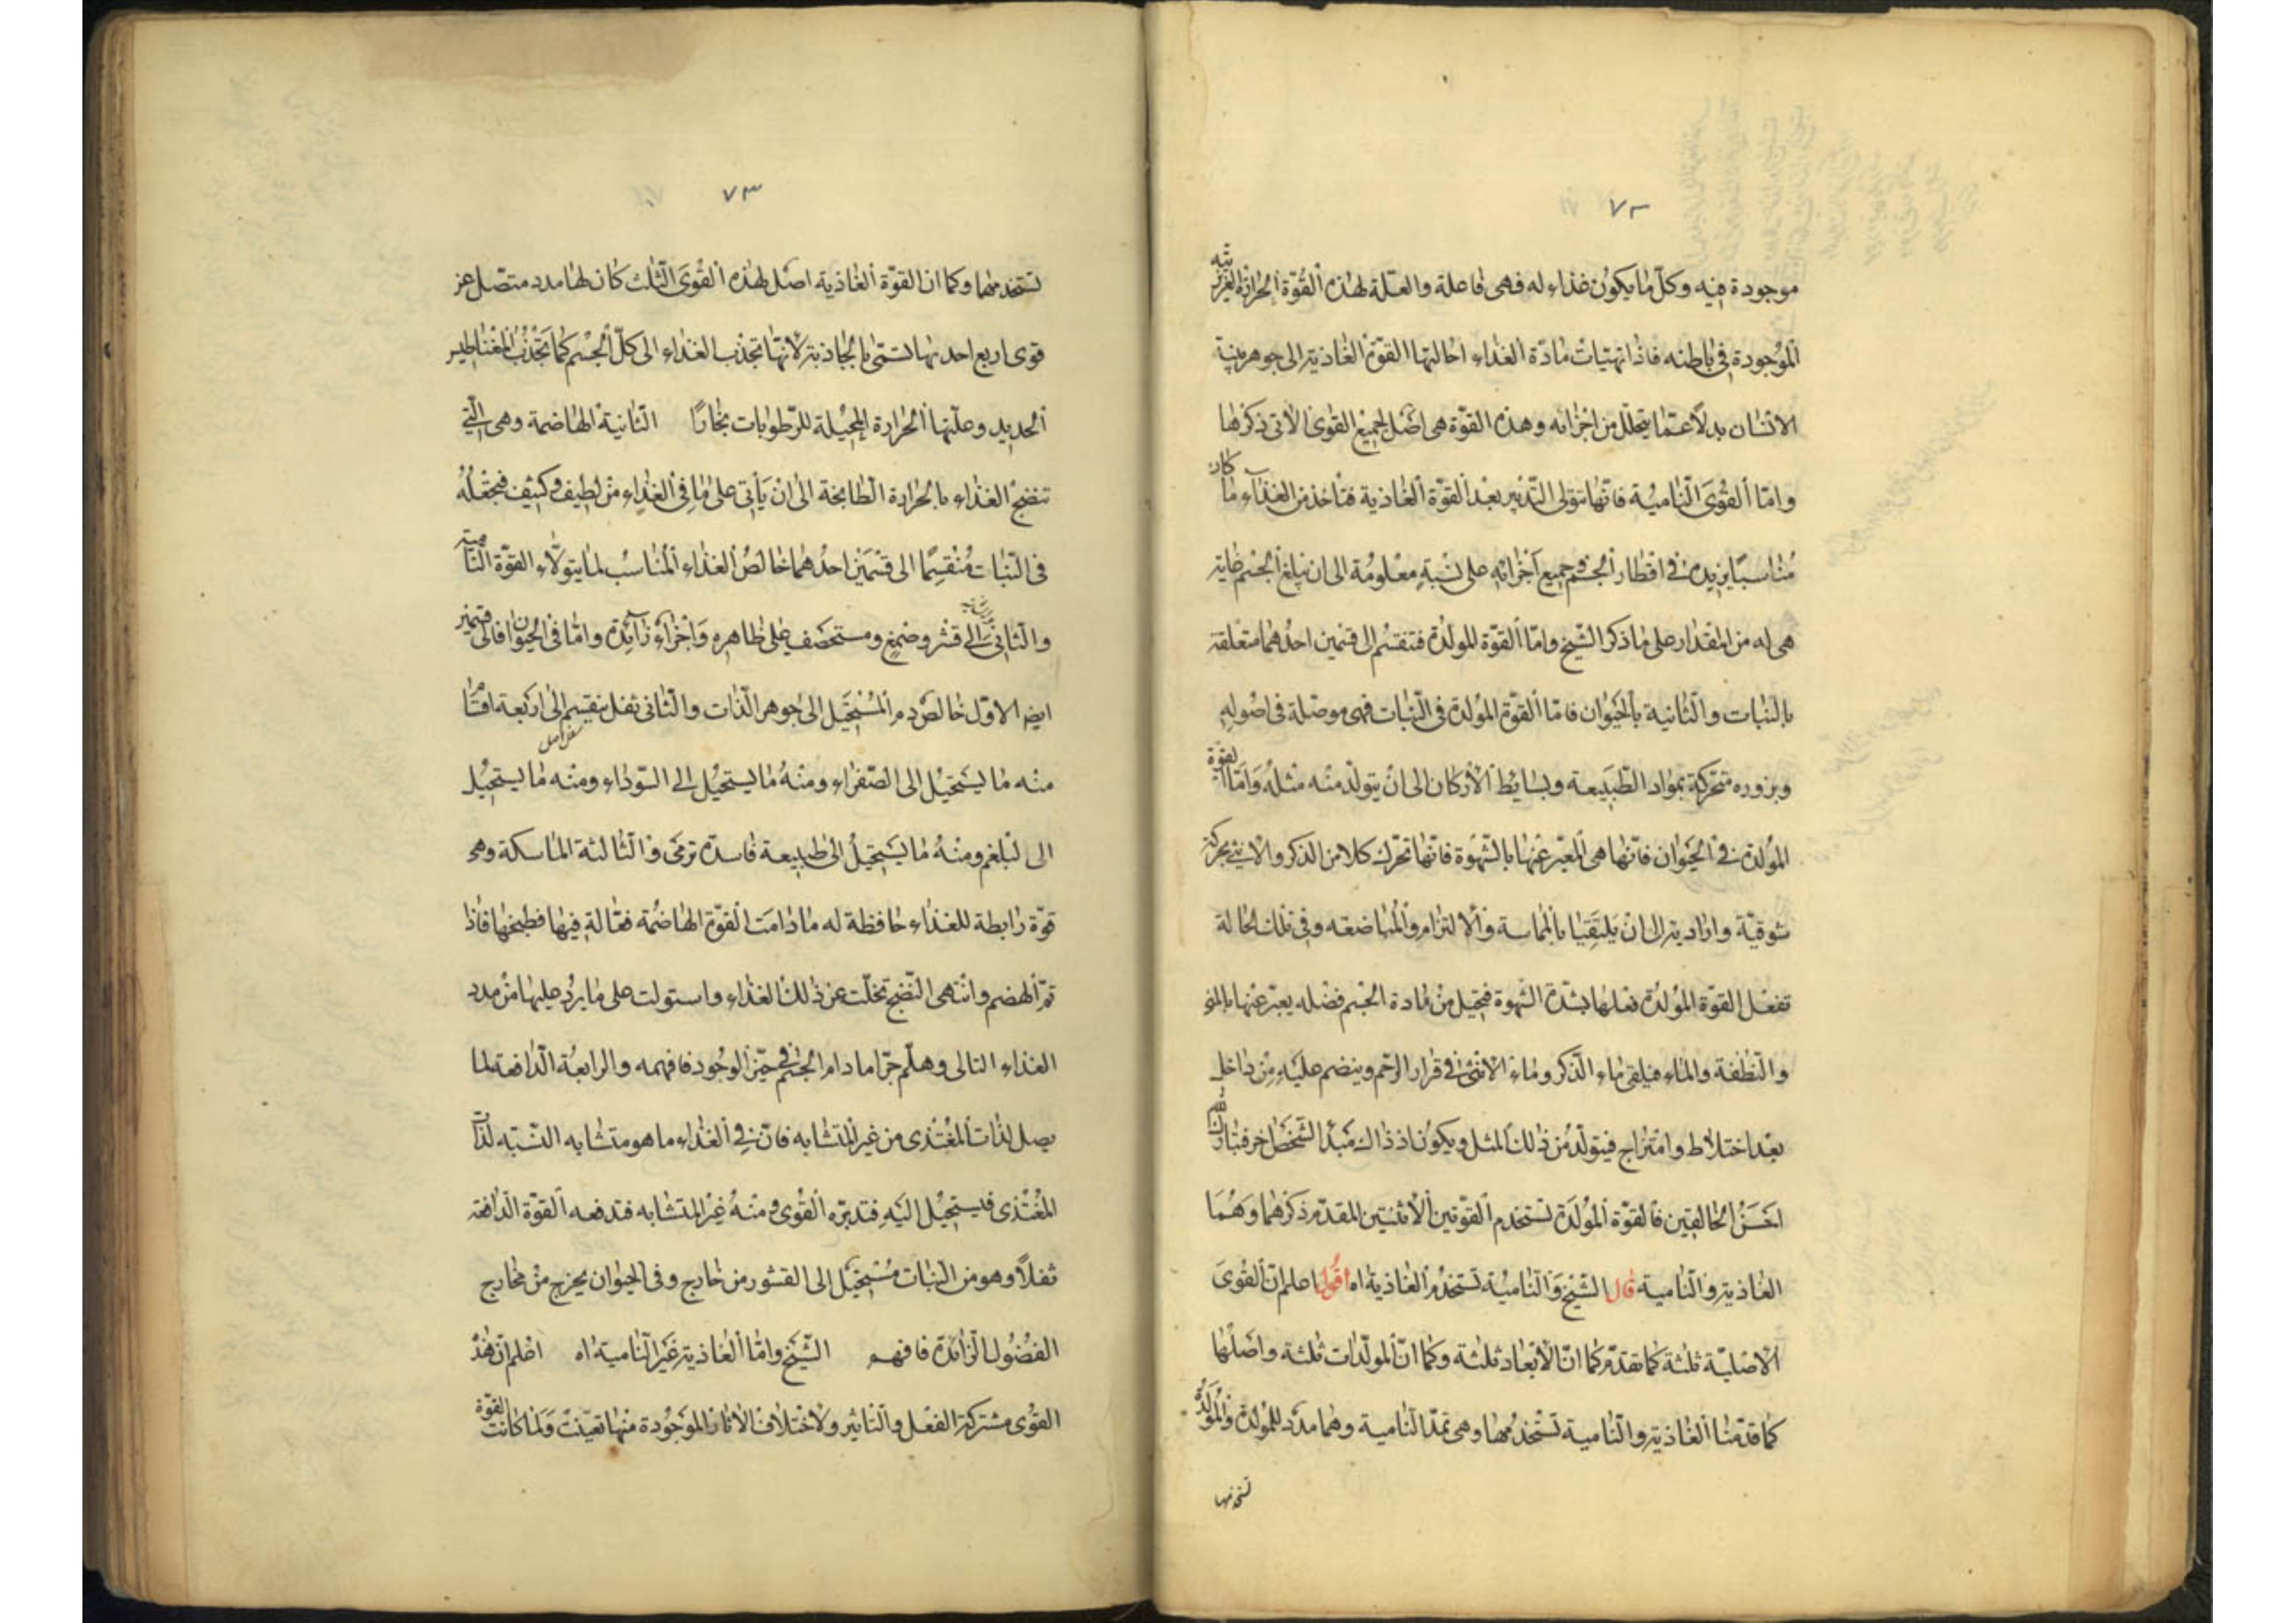 ٧٢
موجودة فيه وكلّ ما يكون غذاء له فهى فاعلة والعلّة لهذه القوّة الحرارة الغريزيّة
الموجودة فى باطنه فاذا تهيّات مادّة الغذاء احالتها القوّة الغاذية الى جوهر بنية
الانسان بدلاً عمّا يتحلّل من اجزائه وهذه القوّة هى اصل لجميع القوى الاتى ذكرها
وامّا القوى النّامية فانّها تتولى التّدبير بعد القوّة الغاذية فتاخذ من الغذاء ما كان
مناسبًا يزيده فى اقطار الجسم فى جميع اجزائه على نسبة معلومة الى ان يبلغ الجسم غاية
هى له من المقدار على ما ذكر الشّيخ وامّا القوّة المولّدة فتنقسم الى قسمين احدهما متعلقة
بالنبات والثانية بالحيوان فامّا القوّة المولّدة فى النبات فهى موصلة فى اصوله
وبزوره متحركة بمواد الطّبيعة وبسايط الاركان الى ان يتولّد منه مثله وامّا القوة
المولّدة فى الحيوان فانّها هى المعبّر عنها بالشّهوة فانّها تحرّك كلا من الذكر والانثى بحركة
شوقيّة وارادية الى ان يلتقيا بالمماسة والالتزام والمباضعه وفى تلك الحالة
تفعل القوّة المولّدة فعلها بشدّة الشّهوة فتحيل من مادة الجسم فضله يعبّر عنها بالمنى
والنّطفة والماء فيلقى ماء الذّكر وماء الانثى فى قرار الرّحم وينضم عليه من داخل
بعد اختلاط وامتزاج فيتولّد من ذلك المثل ويكون اذ ذاك مبدأ الشّخص اخر فتبارك الله
احسن الخالقين فالقوّة المولّدة تستخدم القوّتين الاثنتين المقدّم ذكرهما وهما
الغاذية والنّامية قال الشّيخ والنّامية تستخدم الغاذية اه اقول اعلم انّ القوى
الاصليّة ثلثة كما تقدّم كما انّ الابعاد ثلثة وكما انّ المولّدات ثلثة واصلها
كما قدّمنا الغاذية والنّامية تستخدمها وهى تمدّ النّامية وهما مدد للمولدة والمولّدة
تستخدمهما
٧٣
تستخدمهما وكما ان القوّة الغاذية اصل لهذه القوى الثلث كان لها مدد متصل عن
قوى اربع احدیها تسمّى بالجاذبة لانّها تجذب الغذاء الى كلّ الجسم كما يجذب المغناطيس
الحديد وعلّتها الحرارة المحيلة للرّطوبات بخارًا الثانية الهاضمة وهى الّتى
تنضج الغذاء بالحرارة الطابخة الى ان يأتى على ما فى الغذاء من لطيف وكثيف فتجعله
فى النّبات منقسمًا الى قسمين احدهما خالص الغذاء المناسب لما يتولاه القوّة النّامية
والثانى الى قشر وصمغ ومستحصف على ظاهره واجزاء زائدة وامّا فى الحيوان فالى قسمين
ايضا الاوّل خالص دم المستحيل الى جوهر الذّات والثانى ثفل ينقسم الى اربعة اقسام
منه ما يستحيل الى الصّفراء ومنه ما يستحيل الى السّوداء ومنه ما يستحيل
الى البلغم ومنه ما يستحيل الى طبيعة فاسدة ترمى والثالثة الماسكة وهى
قوّة رابطة للغذاء حافظة له ما دامت القوّة الهاضمة فعّالة فيها فطبخها فاذا
تمّ الهضم وانتهى النّضج تخلّت عن ذلك الغذاء واستولت على ما يرد عليها من مدد
الغذاء التالى وهلّم جرّا ما دام الجسم فى حيّز الوجود فافهمه والرابعة الدّافعة لما
يصل لذات المغتذى من غير المتشابه فانّ فى الغذاء ما هو متشابه النّسبة لذات
المغتذى فيستحيل اليه فتدبره القوى ومنه غير المتشابه فتدفعه القوّة الدّافعة
ثفلاً وهو من النبات مستحيل الى القشور من خارج وفى الحيوان يخرج من مخارج
الفضول الزائدة فافهم الشّيخ وامّا الغاذية غير النّامية اه اعلم انّ هذه
القوى مشتركة الفعل والتاثير ولاختلاف الاثار الموجودة منها تعيّنت ولما كانت القوّة